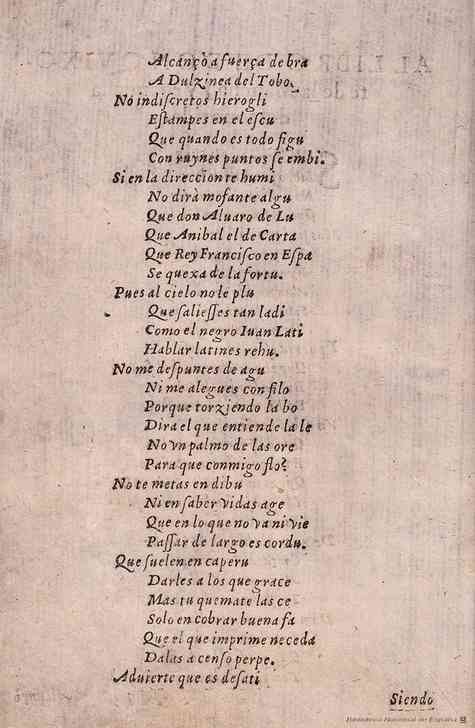 Alcançò a fuerça de bra
A Dulzinea del Tobo.
No indiscretos hierogli
Estampes en el escu
Que quando es todo figu
Con ruynes puntos se embi.
Si en la direccion te humi
No dirà mofante algu
Que don Aluaro de Lu
Que Anibal el de Carta
Que Rey Francisco en Espa
Se quexa de la fortu.
Pues al cielo no le plu
Que saliesses tan ladi
Como el negro Iuan Lati
Hablar latines rehu.
No me despuntes de agu
Ni me alegues con filo
Porque torziendo la bo
Dira el que entiende la le
No vn palmo de las ore
Para que conmigo flo?
No te metas en dibu
Ni en saber vidas age
Que en lo que no va ni vie
Passar de largo es cordu.
Que suelen en caperu
Darles a los que grace
Mas tu quemate las ce
Solo en cobrar buena fa
Que el que imprime neceda
Dalas a censo perpe.
Aduierte que es desati
Siendo
Biblioteca Nacional de España